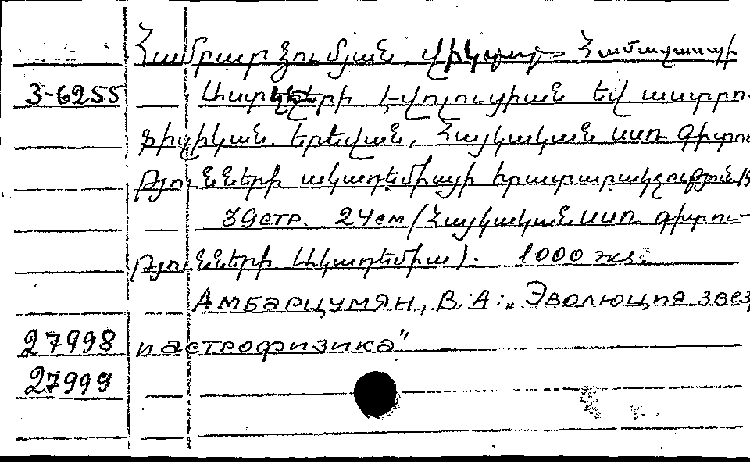 Համբարձումյան, Վիկտոր Համազասպի
3-6255 Աստղերի էվոլուցիան եվ աստրո-
ֆիզիկան. Երեվան, Հայկական ՍՍՌ Գիտու-
թյունների ակադեմիայի հրատարակչություն
39стр. 24см (Հայկական ՍՍՌ գիտու-
թյունների Ակադեմիա). 1000 экз.
Амбарцумян, В.А: „Эволюция звез
27998 и астрофизика"
27999